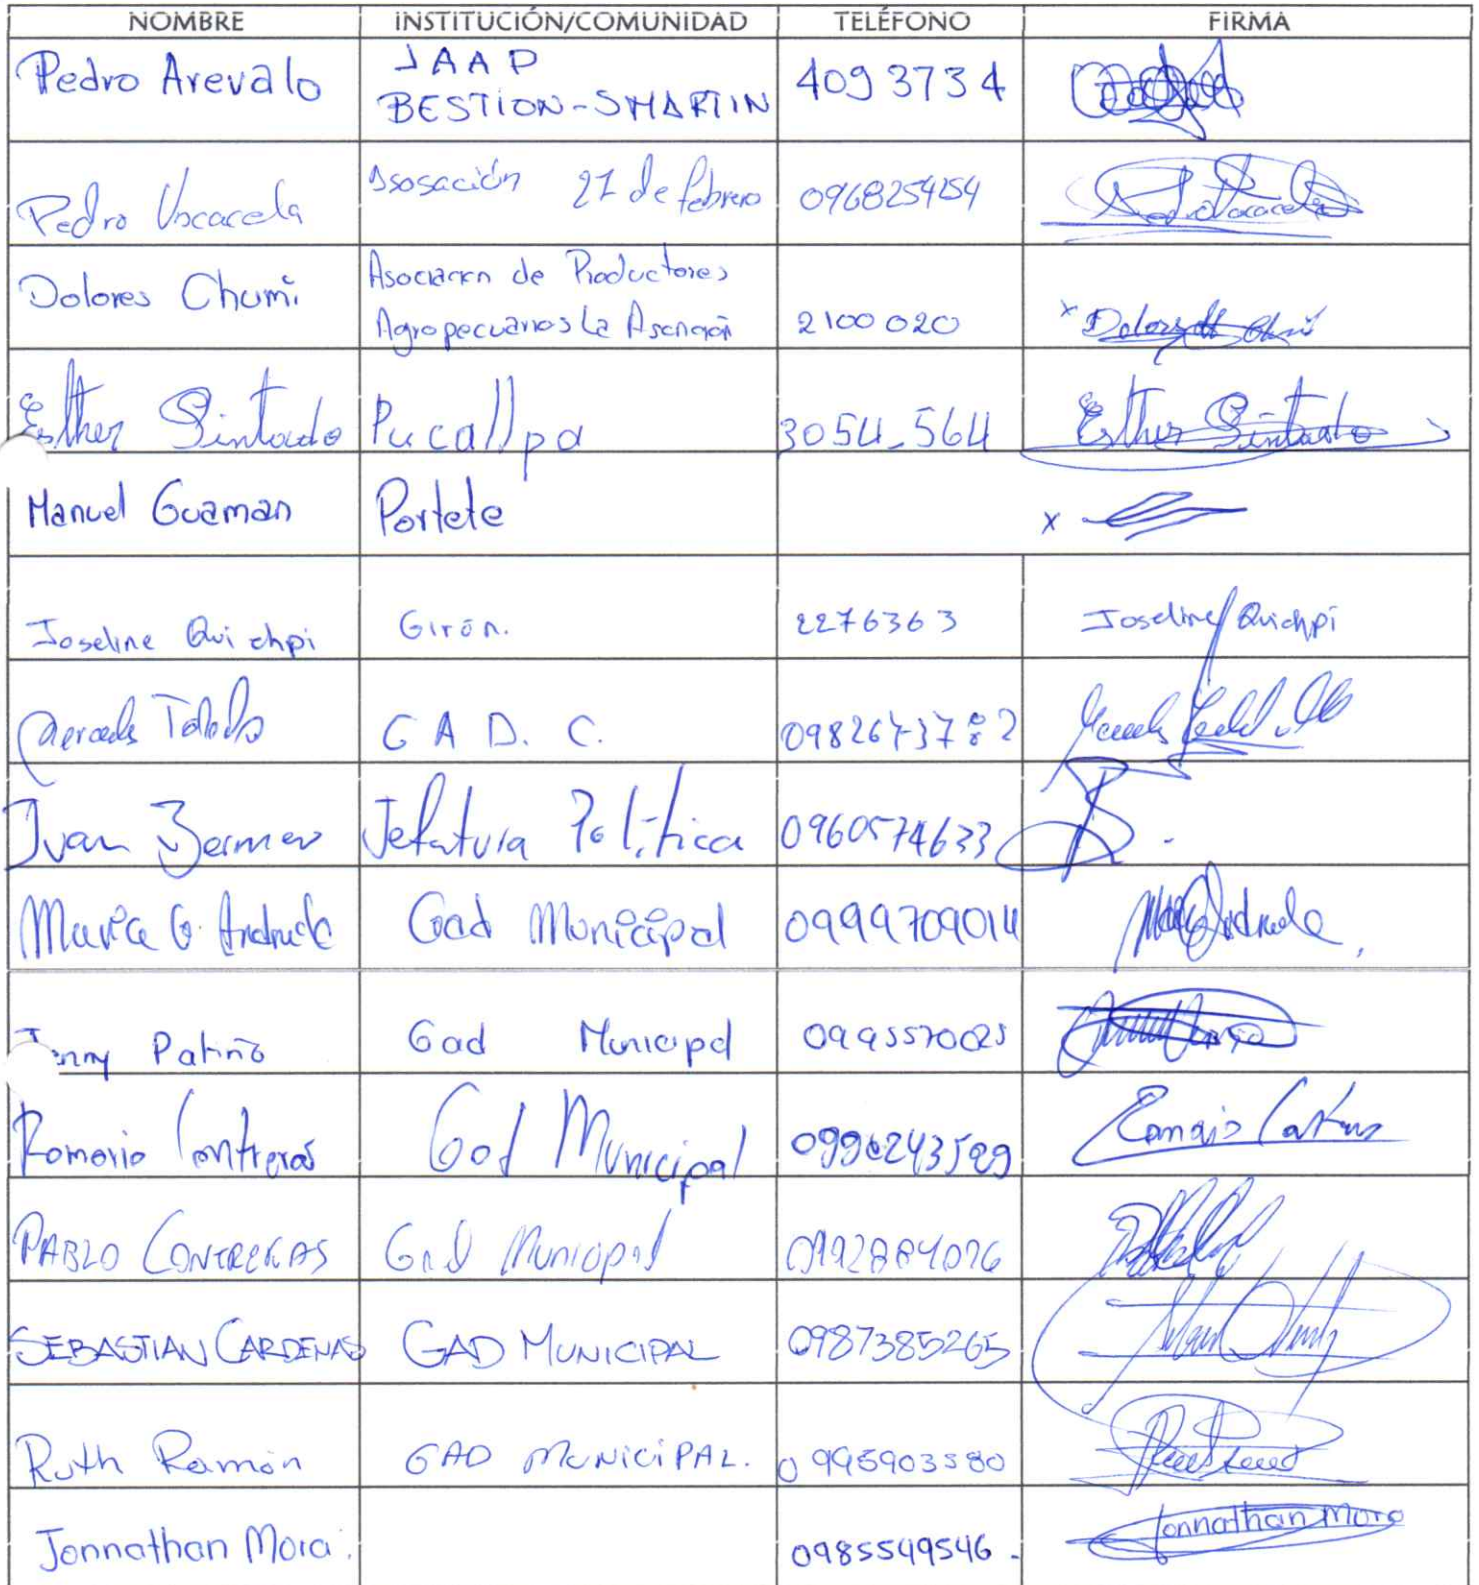 NOMBRE INSTITUCIÓN/COMUNIDAD TELÉFONO FIRMA
Pedro Arevalo JAAP BESTION-SMARTIN 4093734
Pedro Vacacela Asosación 27 de febrero 0968254254
Dolores Chumi Asociación de Productores Agropecuarios La Asención 2100020
Esther Pintado Pucallpa 3054-564 Esther Pintado
Manuel Guaman Portete X
Joseline Quichpi Girón. 2276363 Joseline Quichpi
Mercedes Toledo G A D. C.
Juan Bermeo Jefatura Política 0960574633
Maria G. Andrade Gad Municipal 0999709014
Jenny Patiño Gad Municipal 0995570025
Romario Contreras Gad Municipal
PABLO CONTRERAS Gad Municipal 0992884076
SEBASTIAN CARDENAS GAD MUNICIPAL 0987385265
Ruth Ramón GAD MUNICIPAL. 0995903580
Jonnathan Mora. 0985549546. Jonnathan Mora